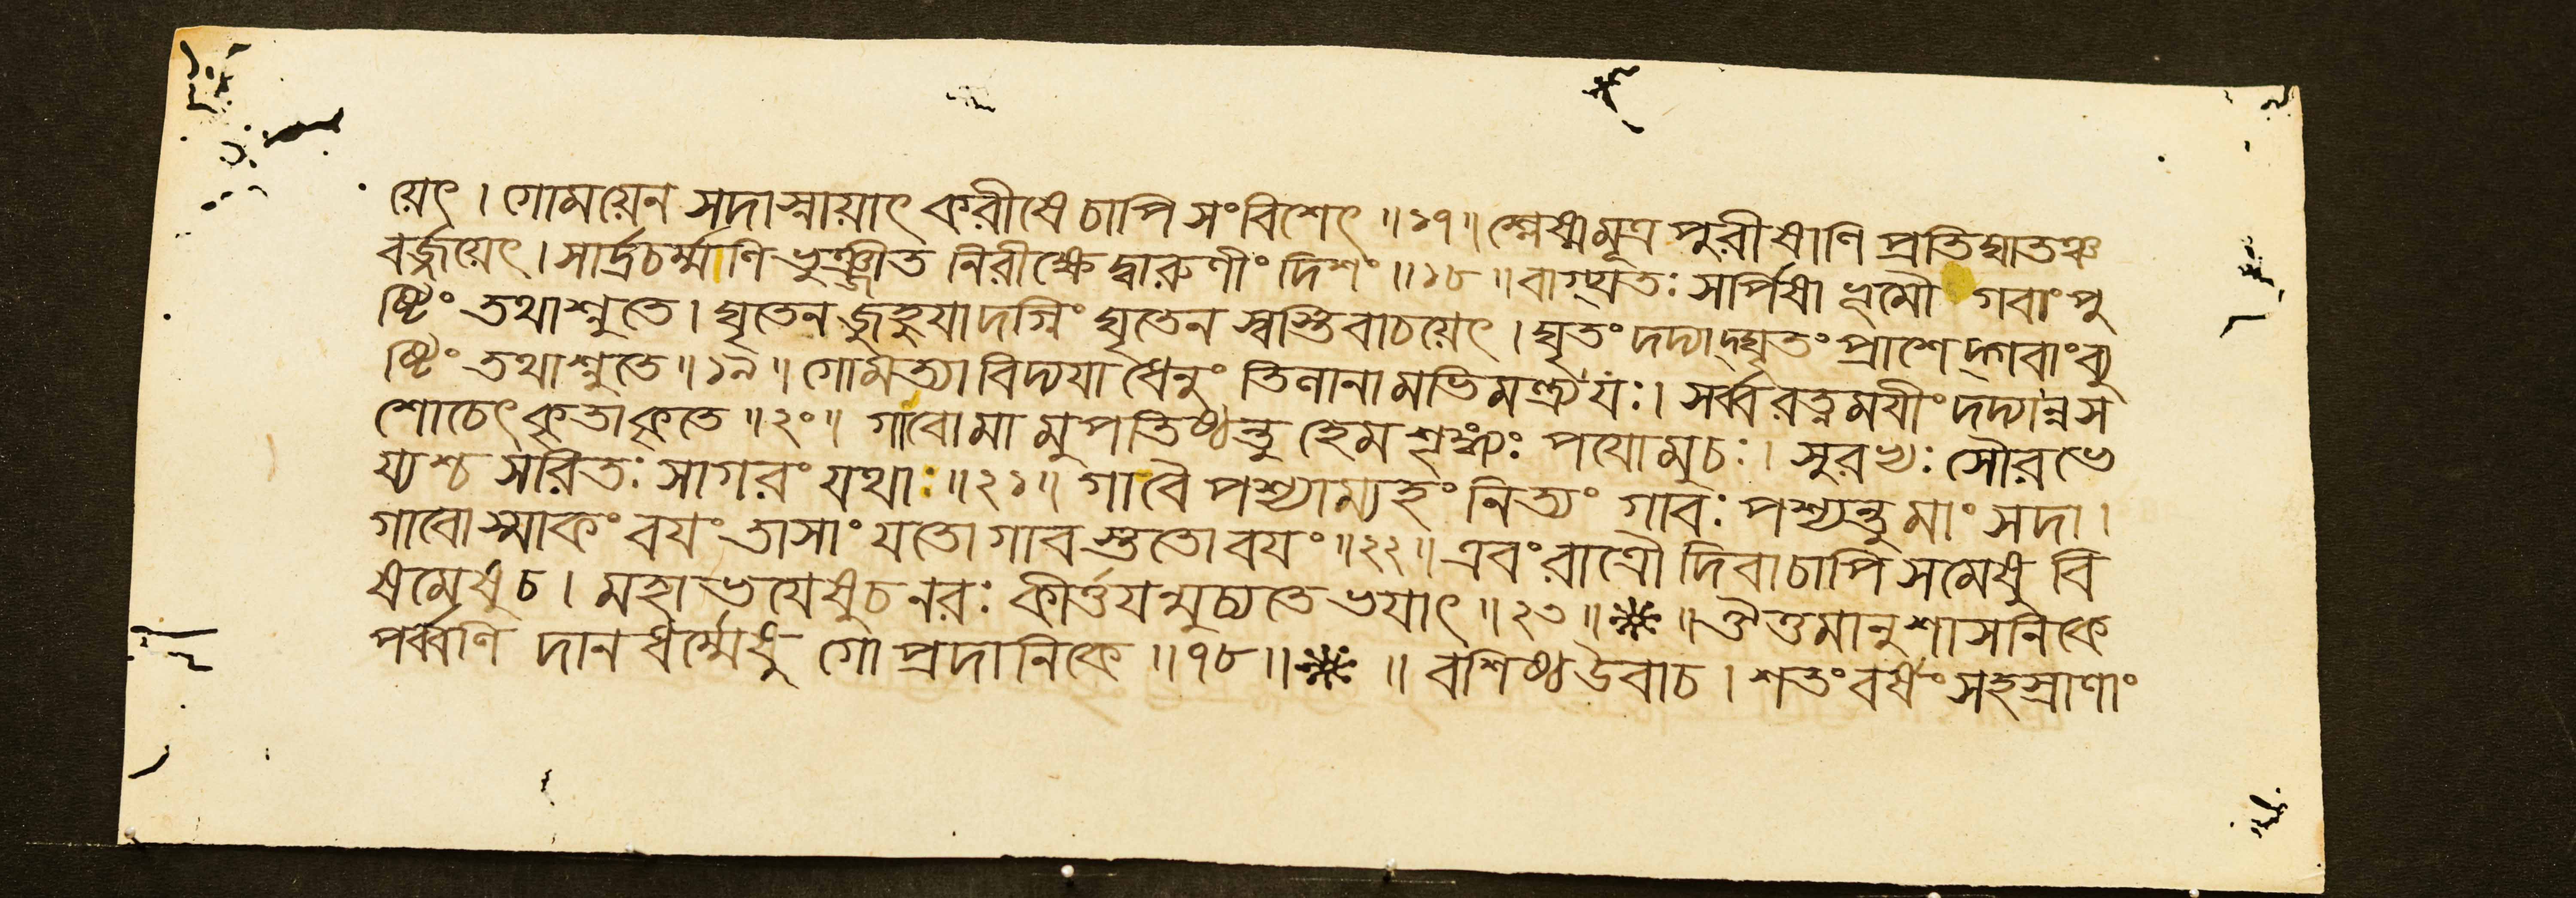 য়েৎ । গোময়েন সদাস্নায়াৎ করীষে চাপি সংবিশেৎ ॥ ১৭ ॥ শ্লেষ্মমূত্র পুরীষাণি প্রতিঘাতঞ্চ
বর্জ্জয়েৎ । সার্দ্রচর্ম্মাণি ভুঞ্জীত নিরীক্ষে দ্বারুণীং দিশং ॥ ১৮ ॥ বাগ্যতঃ সর্পিষা ভূমৌ গবাং পু
ষ্টিং তথাশ্নুতে । ঘৃতেন জুহুযাদগ্নিং ঘৃতেন স্বস্তিবাচয়েৎ । ঘৃতং দদ্যাদ্ঘৃতং প্রাশেদ্গবাং ব্যু
ষ্টিং তথাশ্নুতে ॥ ১৯ ॥ গোমত্যা বিদ্যযা ধেনুং তিলানামভিমন্ত্র্য যঃ । সর্ব্বরত্নমযীং দদ্যান্ন স
শোচেৎ কৃতাকৃতে ॥ ২০ ॥ গাবোমা মুপতিষ্ঠন্তু হেম শৃঙ্গ্যঃ পযোমুচঃ । সুরভ্যঃ সৌরভে
য্যশ্চ সরিতঃ সাগরং যথাঃ ॥ ২১ ॥ গাবৈ পশ্যাম্যহং নিত্যং গাবঃ পশ্যন্তু মাং সদা ।
গাবোস্মাকং বযং তাসাং যতো গাবস্তুতো বযং ॥ ২২ ॥ এবং রাত্রৌ দিবাচাপি সমেষু বি
ষমেষু চ । মহাভযেষু চ নরঃ কীর্ত্তযন্মুচ্যতে ভযাৎ ॥ ২৩ ॥ ※ ॥ ঔত্তমানুশাসনিকে
পর্ব্বণি দানধর্ম্মেষু গোপ্রদানিকে ॥ ৭৮ ॥ ※ ॥ বশিষ্ঠউবাচ । শতং বর্ষং সহস্রাণাং